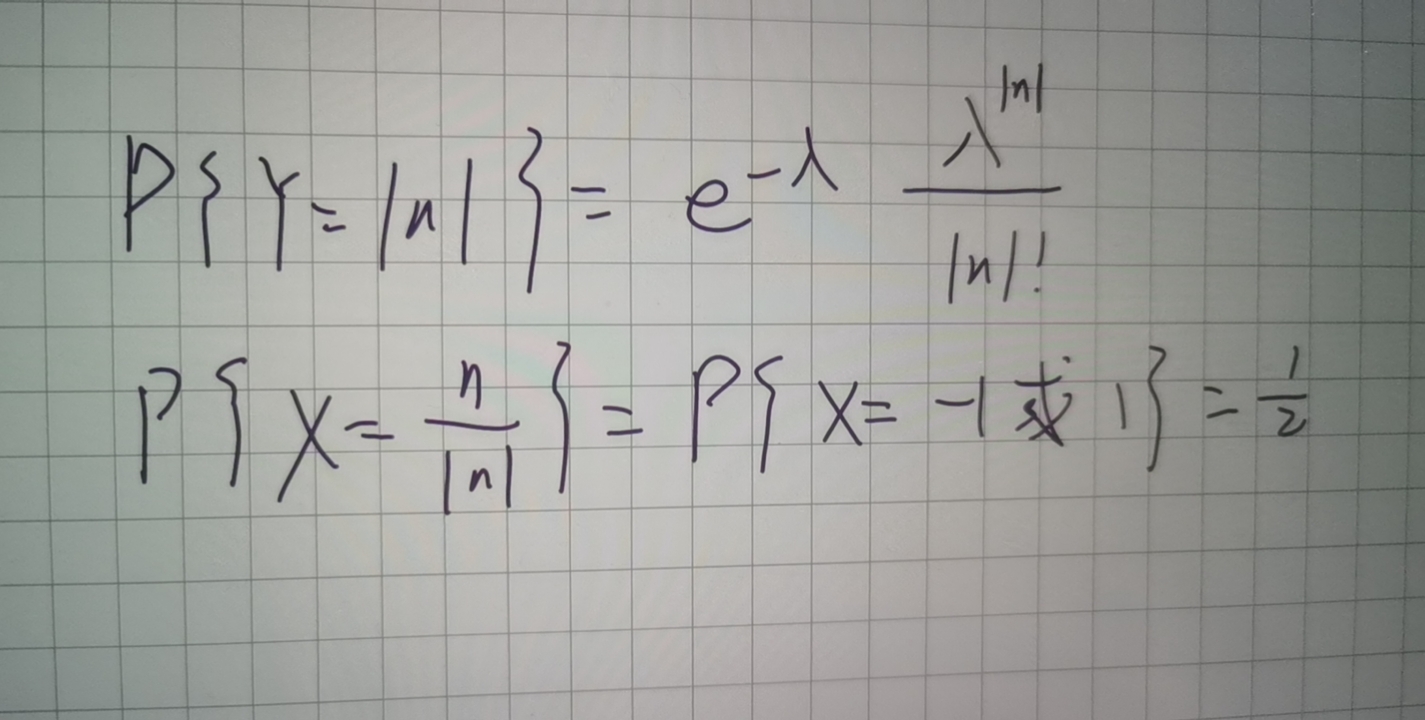 P{Y=|n|}= e^{-λ} \frac{λ^{|n|}}{|n|!}
P{X=\frac{n}{|n|}}=P{X=-1或1}=\frac{1}{2}